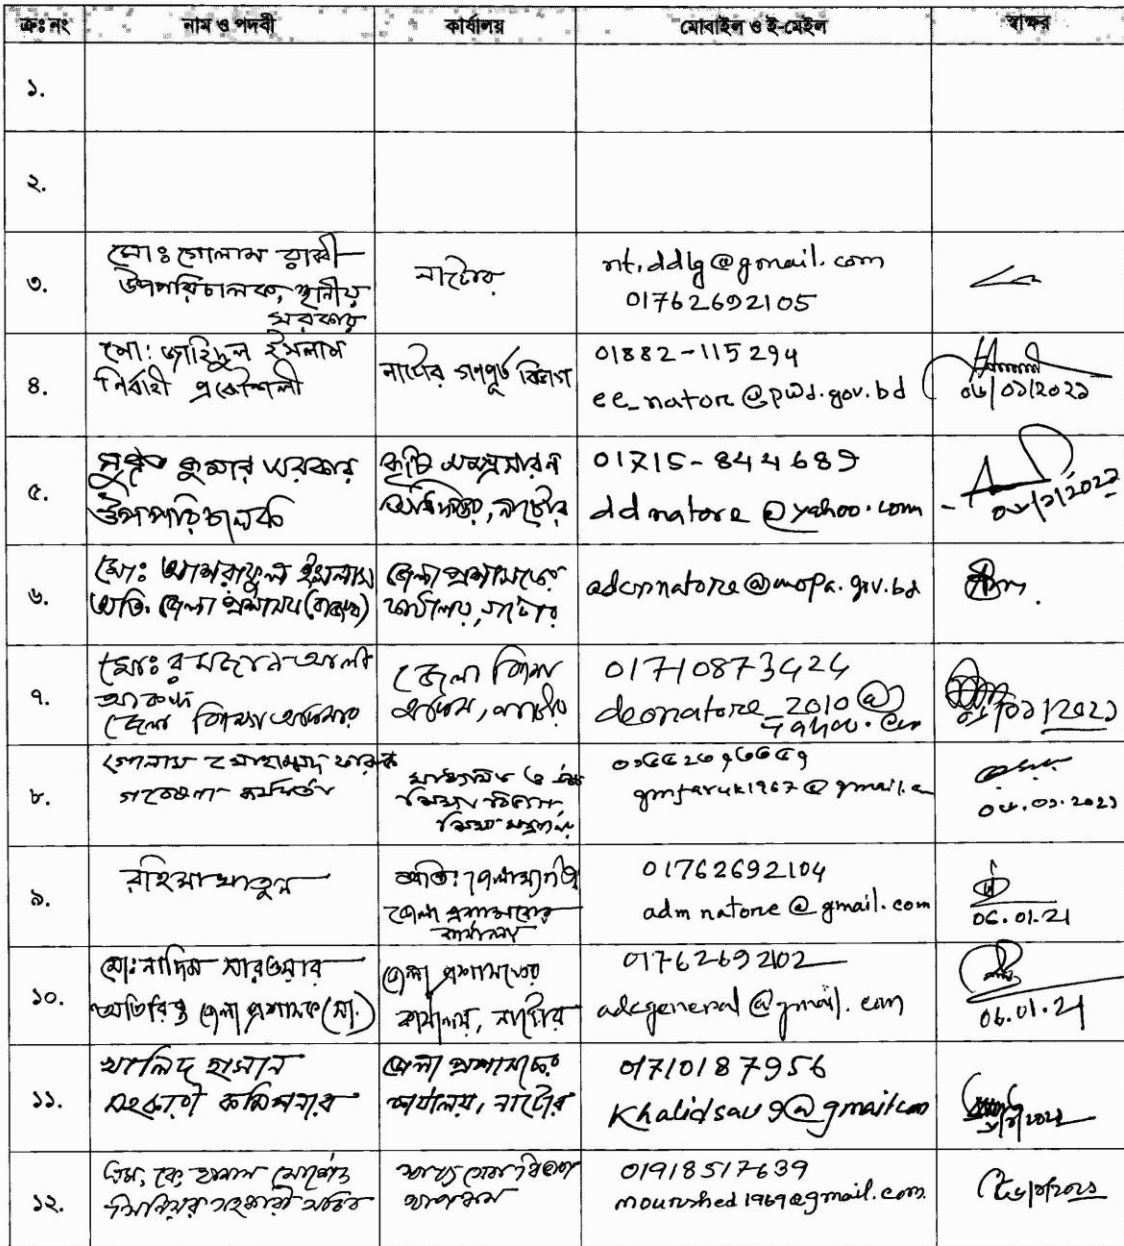 ক্রঃ নং নাম ও পদবী কার্যালয় মোবাইল ও ই-মেইল স্বাক্ষর
১.
২.
৩.
মোঃ গোলাম রাব্বী
উপপরিচালক, স্থানীয়
সরকার
নাটোর
nt.ddlg@gmail.com
01762692105
৪.
মো: জাহিদুল ইসলাম
নির্বাহী প্রকৌশলী
নাটোর গণপূর্ত বিভাগ
01882-115294
ee_natore@pwd.gov.bd
০৬/০১/২০২১
৫.
সুব্রত কুমার সরকার
উপপরিচালক
কৃষি সম্প্রসারন
অধিদপ্তর, নাটোর
01715-844689
ddnatore@yahoo.com
৬.
মোঃ আশরাফুল ইসলাম
অতি. জেলা প্রশাসক (রাজস্ব)
জেলা প্রশাসকের
কার্যালয়, নাটোর
adcrnatore@mopa.gov.bd
৭.
মোঃ রমজান আলী
আকন্দ
জেলা শিক্ষা অফিসার
জেলা শিক্ষা
অফিস, নাটোর
01710873424
deonatore_2010@
yahoo.com
৮.
গোলাম মোহাম্মদ ফারুক
গবেষণা কর্মকর্তা
মাধ্যমিক ও উচ্চ
শিক্ষা বিভাগ,
gmfaruk1967@gmail.c
০৬.০১.২০২১
৯.
রহিমা খাতুন
জেলা প্রশাসকের
কার্যালয়
01762692104
admnatore@gmail.com
06.01.21
১০.
মোঃ নাদিম সারওয়ার
অতিরিক্ত জেলা প্রশাসক (সা.)
জেলা প্রশাসকের
কার্যালয়, নাটোর
01762692102
adcgeneral@gmail.com
06.01.21
১১.
খালিদ হাসান
সহকারী কমিশনার
জেলা প্রশাসকের
কার্যালয়, নাটোর
01710187956
Khalidsau9@gmail.com
১২.
এম. কে. হাসান মোর্শেদ
সিনিয়র সহকারী সচিব
স্বাস্থ্য সেবা বিভাগ
01918517639
mourshed1969@gmail.com